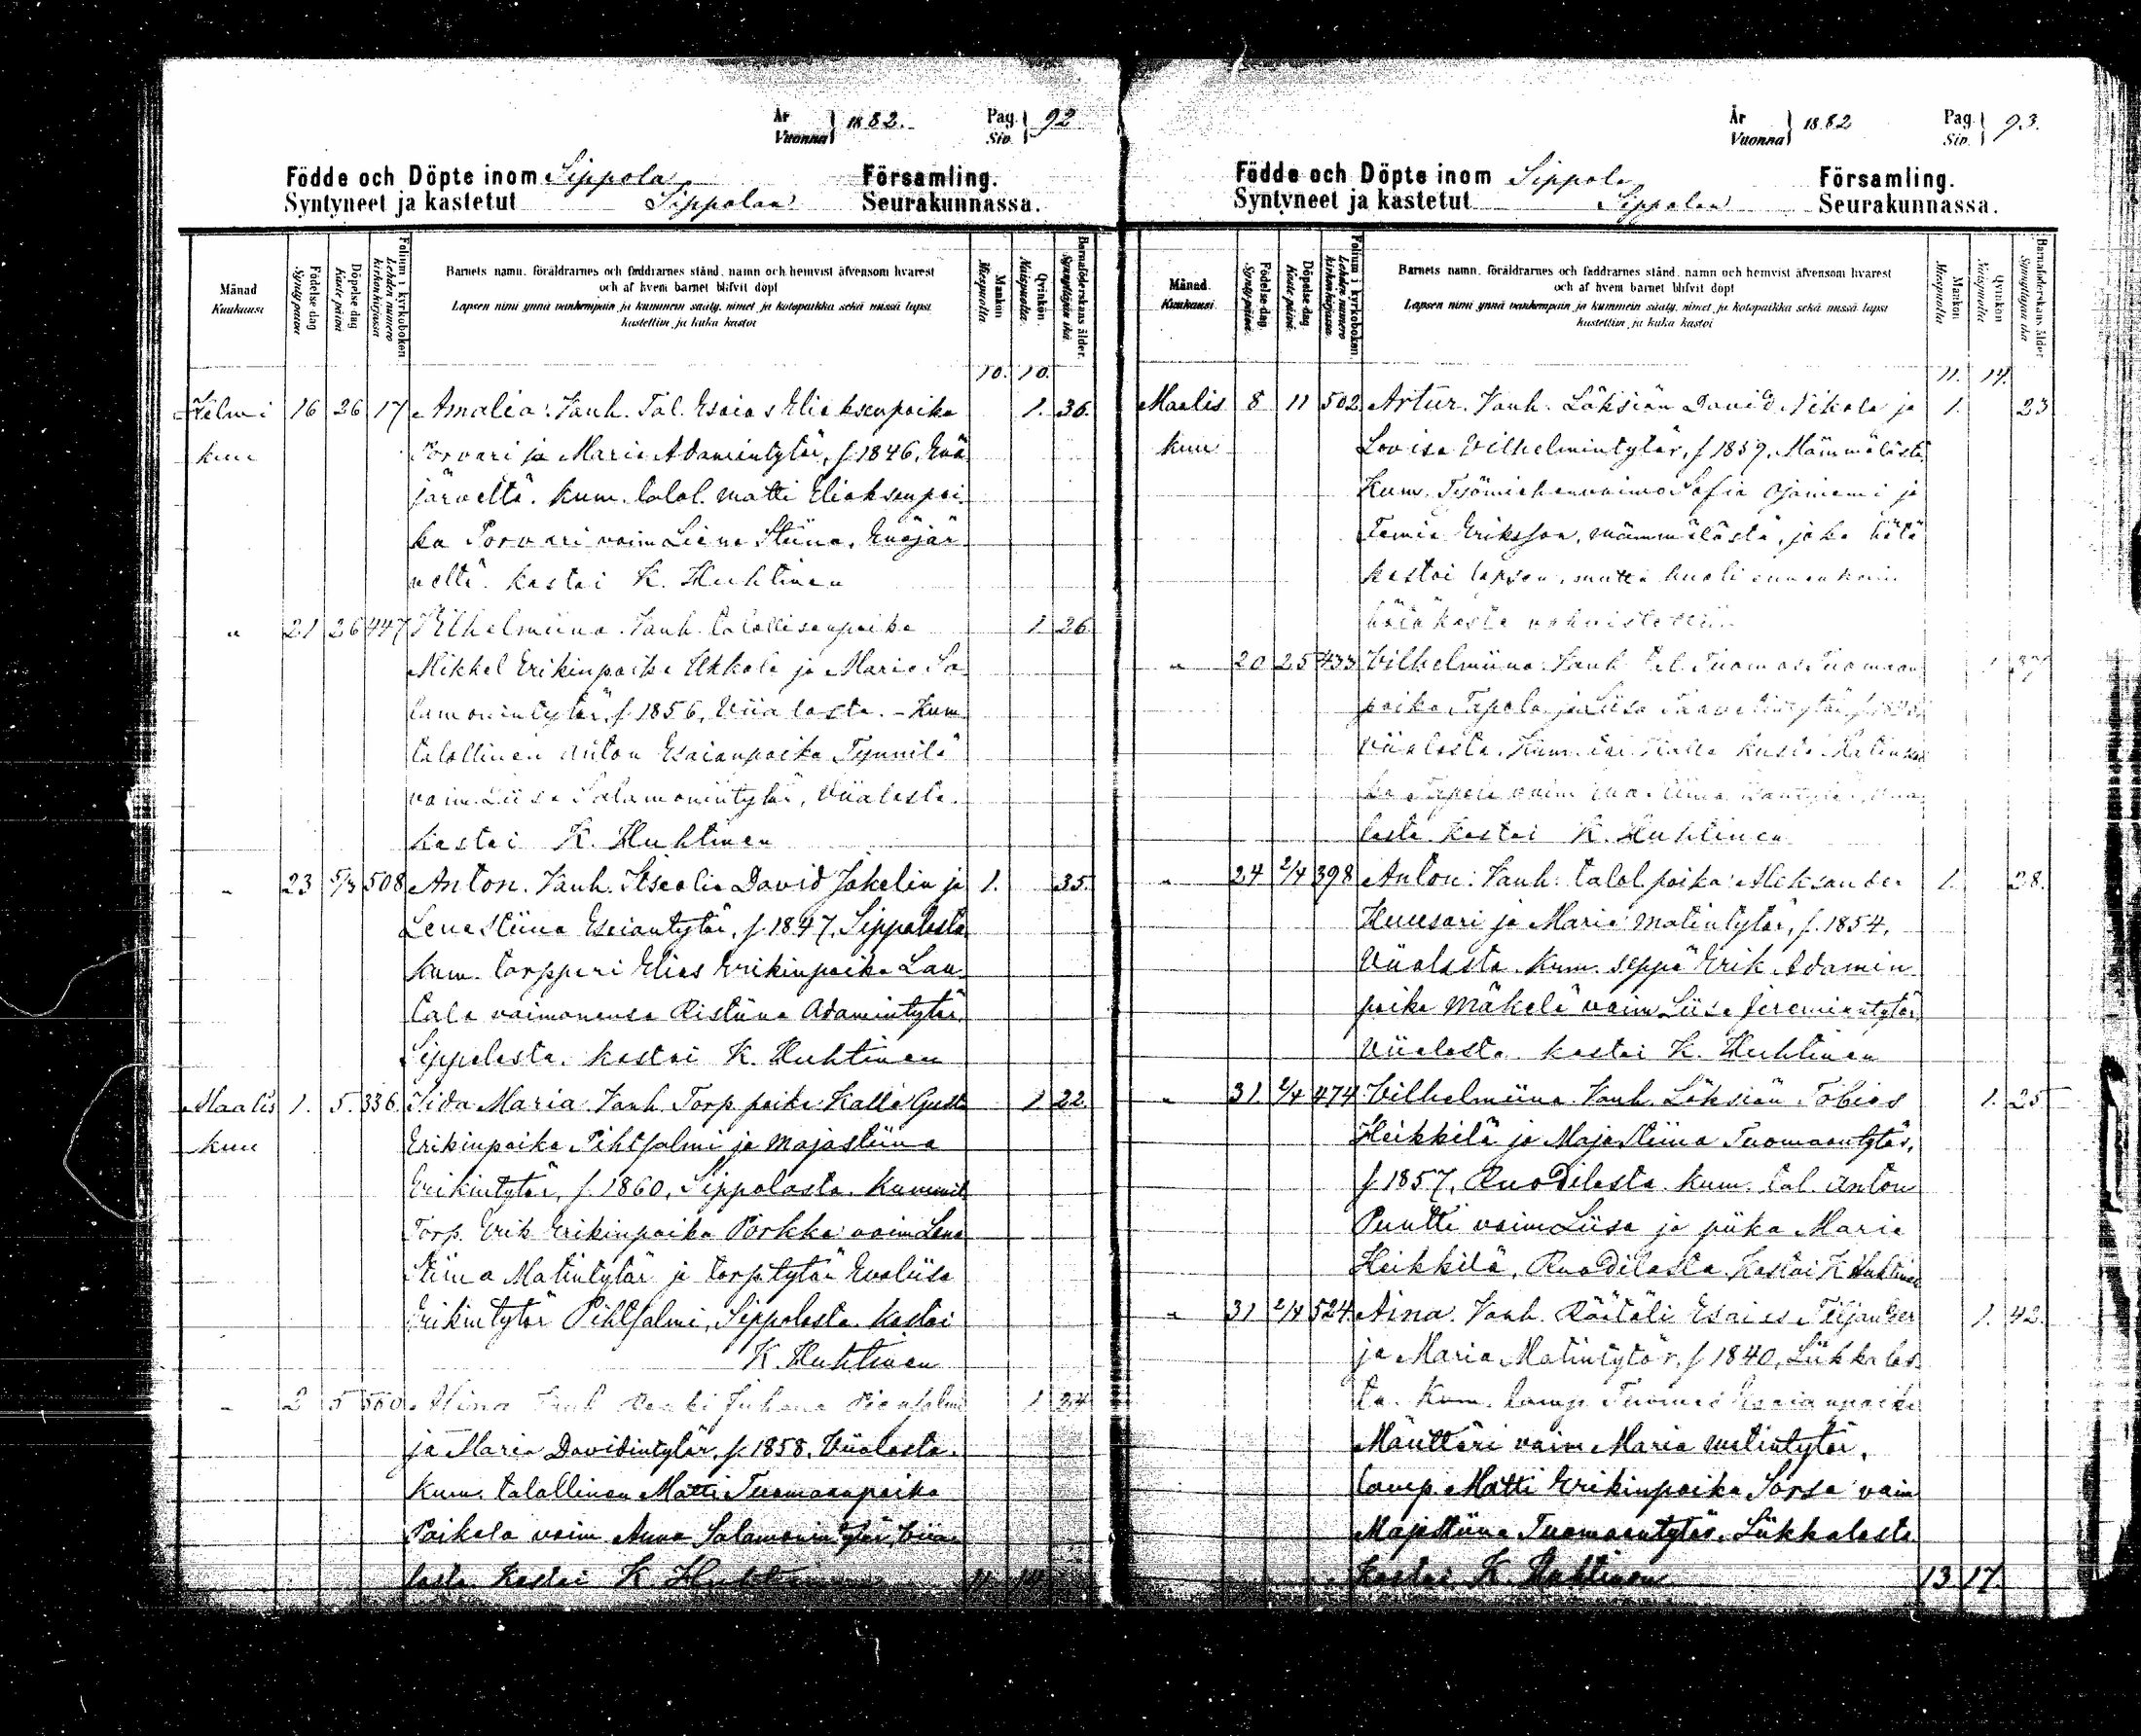 År
Vuonna } 1882. Pag. Siv. } 92
Födde och Döpte inom Sippola Församling.
Syntyneet ja kastetut Sippolan Seurakunnassa.
Månad Kuukausi
Födelse dag Synty päivä
Döpelse dag Kaste päivä
Folium i kyrkoboken Lehden numero kirkonkirjassa
Barnets namn, föräldrarnes och faddrarnes stånd, namn och hemvist äfvensom hvarest
och af hvem barnet blifvit döpt
Lapsen nimi ynnä vanhempain ja kummein sääty, nimet ja kotopaikka sekä missä lapsi
kastettiin ja kuka kastoi
Mankön Miespuolta
Qvinkön Naispuolta
Barnaföderskans ålder. Synnyttäjän ikä
10. 10.
Helmi 16 26 17 Amalia. Vanh. Tal. Esaias Eliaksenpoika 1. 36.
kuu Porvari ja Maria Adamintytär, f. 1846, Enä
järveltä. Kum. talol. Matti Eliaksenpoi
ka Porvari vaim Liena Stiina, Enäjär
veltä. Kastoi K. Huhtinen
" 21 26 447 Vilhelmiina. Vanh. talollisenpoika 1. 26.
Mikkel Erikinpoika Ukkola ja Maria Sa
lamonintytär, f. 1856, Viialasta. - Kum.
talollinen Anton Esaianpoika Tynnilä
vaim. Liisa Salamonintytär, Viialasta.
Kastoi K. Huhtinen
" 23 5/3 508 Anton. Vanh. Itsellis David Jakelin ja 1. 35.
Lenastiina Esaiantytär, f. 1847, Sippolasta
Kum. torppari Elias Erikinpoika Lau
tala vaimonensa Ristiina Adamintytär
Sippolasta. Kastoi K. Huhtinen
Maalis 1. 5. 336. Iida Maria. Vanh. Torp. poika Kalle Gust
kuu Erikinpoika Pihtsalmi ja Majastiina 1 22.
Erikintytär, f. 1860, Sippolasta. Kummit
Torp. Erik Erikinpoika Porkka vaim Lena
Stiina Matintytär ja torp. tytär Evaliisa
Erikintytär Pihtsalmi, Sippolasta. Kastoi
K. Huhtinen
" 2 5 560 Vanh. Juhana 1 24
ja Maria Davidintytär, f. 1858, Viialasta.
Kum. talollinen Matti Tuomaanpoika
Paikala vaim Anna Salamonintytär, Viia
lasta Kastoi K. Huhtinen 11. 14.
År
Vuonna } 1882 Pag. Siv. } 93.
Födde och Döpte inom Sippola Församling.
Syntyneet ja kastetut Sippolan Seurakunnassa.
Månad. Kuukausi.
Födelse dag. Synty päivä.
Döpelse dag Kaste päivä.
Folium i kyrkoboken Lehden numero kirkonkirjassa.
Barnets namn, föräldrarnes och faddrarnes stånd, namn och hemvist äfvensom hvarest
och af hvem barnet blifvit döpt
Lapsen nimi ynnä vanhempain ja kummein sääty, nimet ja kotopaikka sekä missä lapsi
kastettiin ja kuka kastoi
Mankön Miespuolta
Qvinkön Naispuolta
Barnaföderskans ålder Synnyttäjän ikä
11. 14.
Maalis 8 11 502 Artur. Vanh. Löksiän David Nikola ja 1. 23
kuu Lovisa Vilhelmintytär, f. 1859, Mämmälästä
Kum. Työmiehenvaimo Sofia Ojaniemi ja
Eriksson, Mämmälästä, joka hätä
kastoi lapsen, mutta kuoli ennenkuin
hätäkaste vahvistettiin
" 20 25 433 Vilhelmiina. Vanh. Tal. Tuomas Tuomaan 1 37
poika Tapola ja Liisa Taavetintytär,
Viialasta. Kum. Kalle Kusta
Tapola vaim
lasta Kastoi K. Huhtinen
" 24 2/4 398 Anton. Vanh. talol. poika Aleksander 1. 28.
Huusari ja Maria Matintytär, f. 1854,
Viialasta. Kum. seppä Erik Adamin
poika Mäkelä vaim Liisa Jeremiantytär
Viialasta. Kastoi K. Huhtinen
" 31 2/4 474 Vilhelmiina. Vanh. Löksiän Tobias 1. 25
Heikkilä ja Majastiina Tuomaantytär,
f. 1857, Ruodilasta. Kum. tal. Anton
Puntti vaim Liisa ja piika Maria
Heikkilä, Ruodilasta. Kastoi K Huhtinen
" 31 2/4 524. Aina. Vanh. Räätäli Esaias Tiljander 1. 42.
ja Maria Matintytär, f. 1840, Liikkalas
ta. Kum. lamp. Tuomas Esaianpoika
Mänttäri vaim Maria Matintytär,
lamp. Matti Erikinpoika Sorsa vaim
Majastiina Tuomaantytär, Liikkalasta
Kastoi K. Huhtinen 13 17.